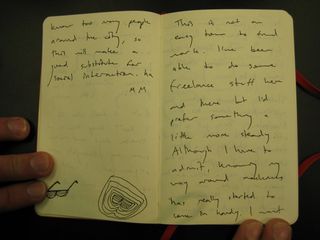 know too many people
around the city, so
this will make a
good substitute for
social interaction. Ha
M M
This is not an
easy town to find
work. I've been
able to do some
freelance stuff here
and there but I'd
prefer something a
little more steady.
Although I have to
admit, knowing my
way around machines
has really started to
come in handy. I want